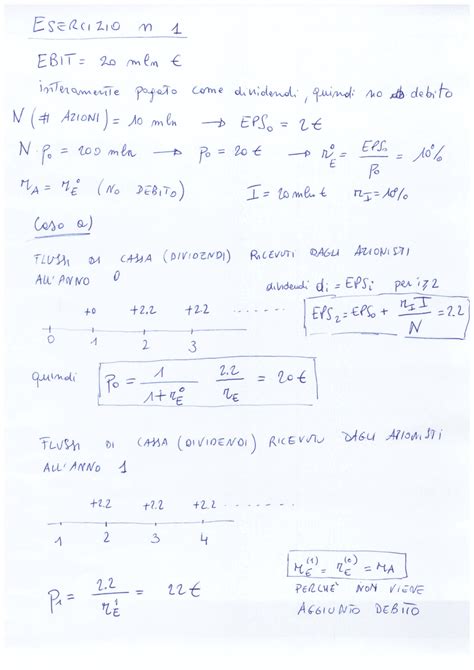 ESERCIZIO n 1
EBIT = 20 mln €
interamente pagato come dividendi, quindi no debito
N (# AZIONI) = 10 mln → EPS₀ = 2€
N·p₀ = 200 mln → p₀ = 20€ → r_E^0 = EPS₀/p₀ = 10%
r_A = r_E^0 (NO DEBITO) I = 20 mln € r_I = 10%
Caso a)
FLUSSI DI CASSA (DIVIDENDI) RICEVUTI DAGLI AZIONISTI
ALL'ANNO 0
dividendi d_i = EPS_i per i≥2
+0 +2.2 +2.2 ......
0 1 2 3
EPS₂ = EPS₀ + r_I I/N = 2.2
quindi p₀ = 1/(1+r_E^0) 2.2/r_E = 20€
FLUSSI DI CASSA (DIVIDENDI) RICEVUTI DAGLI AZIONISTI
ALL'ANNO 1
+2.2 +2.2 +2.2 ......
1 2 3 4
p₁ = 2.2/r_E^1 = 22€
r_E^(1) = r_E^(0) = r_A
PERCHÈ NON VIENE
AGGIUNTO DEBITO